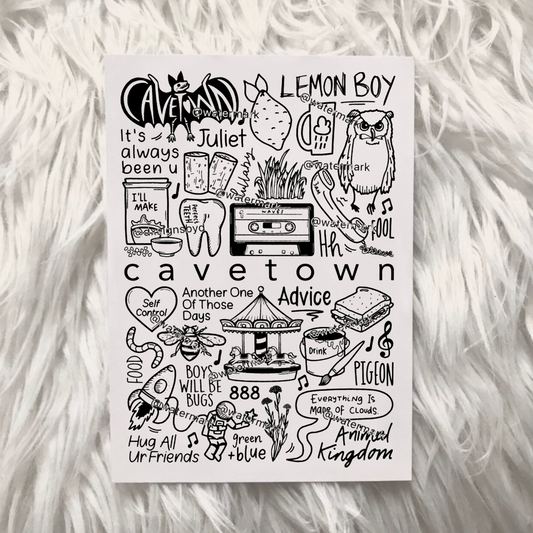 CAVETOWN
LEMON BOY
@watermark
@watermark
It's
always
been u
Juliet
lullaby
@watermark
I'LL
MAKE
@watermark
TEETH
WAVES
@watermark
FOOL
Hh
cavetown
Self
Control
Another One
Of Those
Days
Advice
@watermark
FOOD
Drink
BOYS
WILL BE
BUGS
@watermark
PIGEON
888
EVERYTHING IS
MADE OF CLOUDS.
@watermark
@watermark
@watermark
Hug All
Ur Friends
green
+blue
Animal
Kingdom